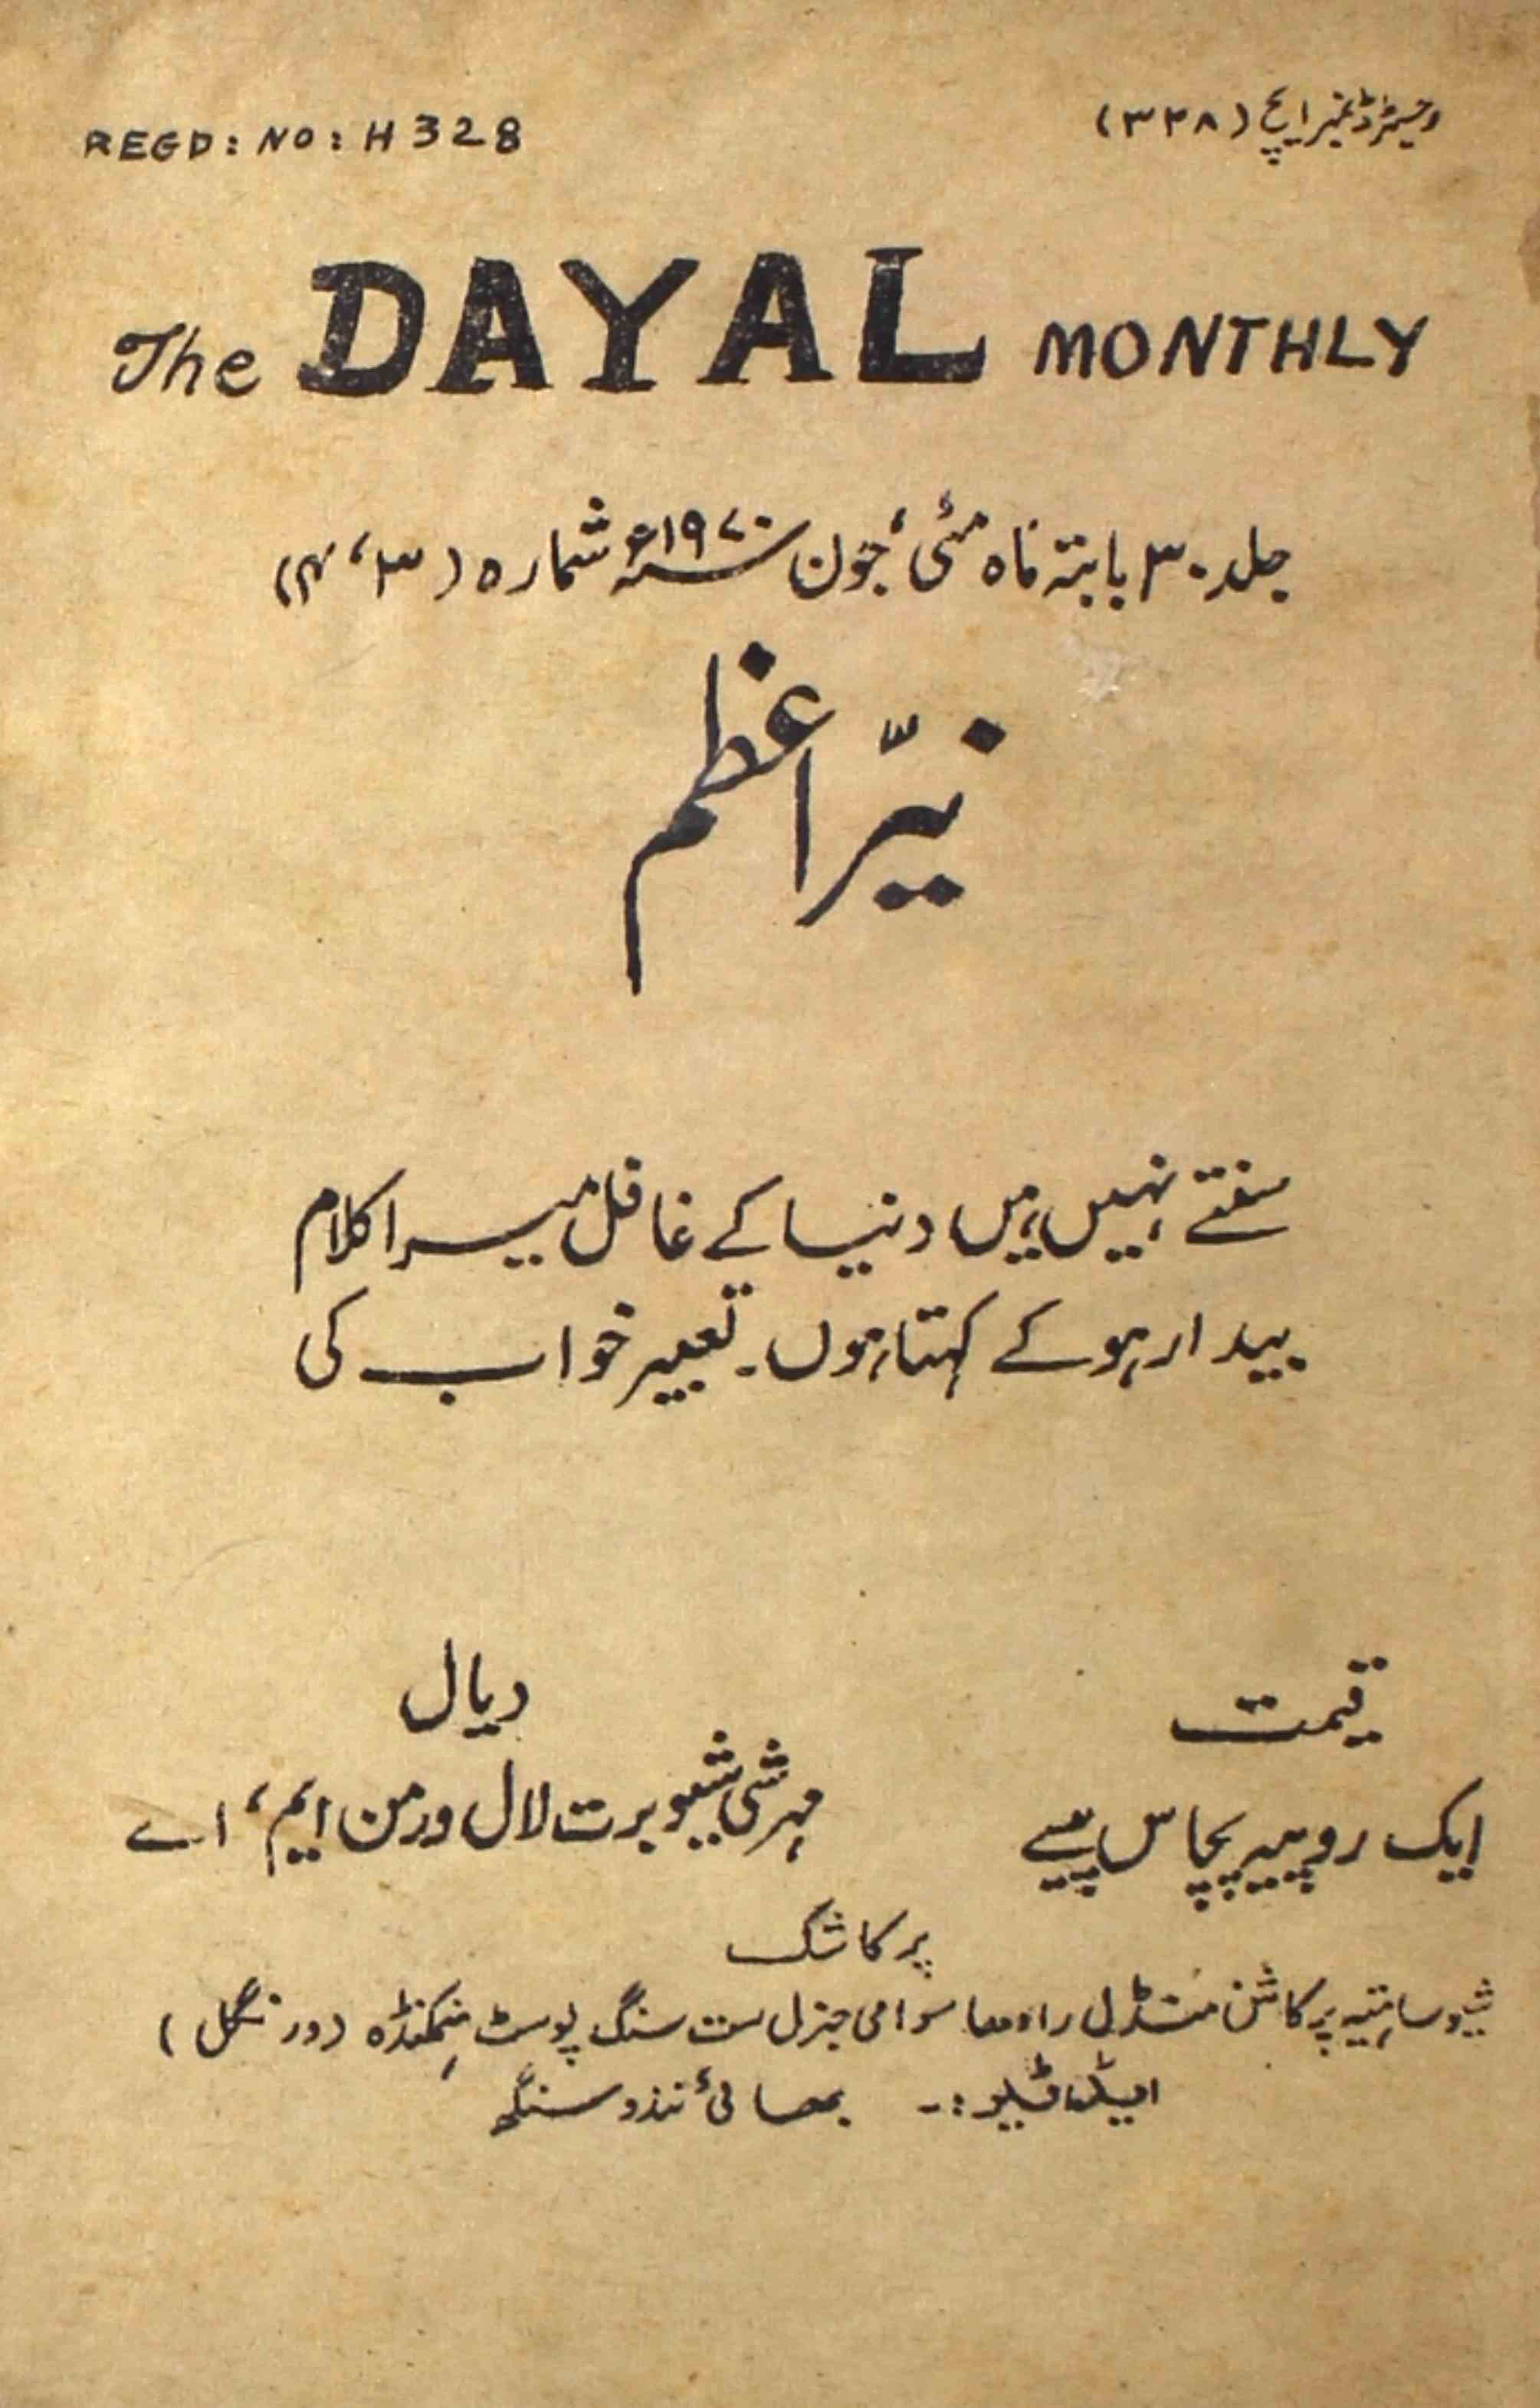 REGD: NO: H 328
رجسٹرڈ نمبر ایچ (۳۲۸)
The DAYAL MONTHLY
جلد ۳۰ بابتہ ماہ مئی، جون سنہ ۱۹۷۰ء شمارہ (۳، ۴)
نیّر اعظم
سنتے نہیں ہیں دنیا کے غافل میرا کلام
بیدار ہو کے کہتا ہوں۔ تعبیر خواب کی
قیمت
ایک روپیہ پچاس پیسے
دیال
مہرشی شیو برت لال ورمن ایم، اے
پرکاشک
شیو ساہتیہ پرکاشن منڈل رادھا سوامی جنرل ست سنگ پوسٹ ہنمکنڈہ (ورنگل)
ایڈیٹر :- بھائی نندو سنگھ